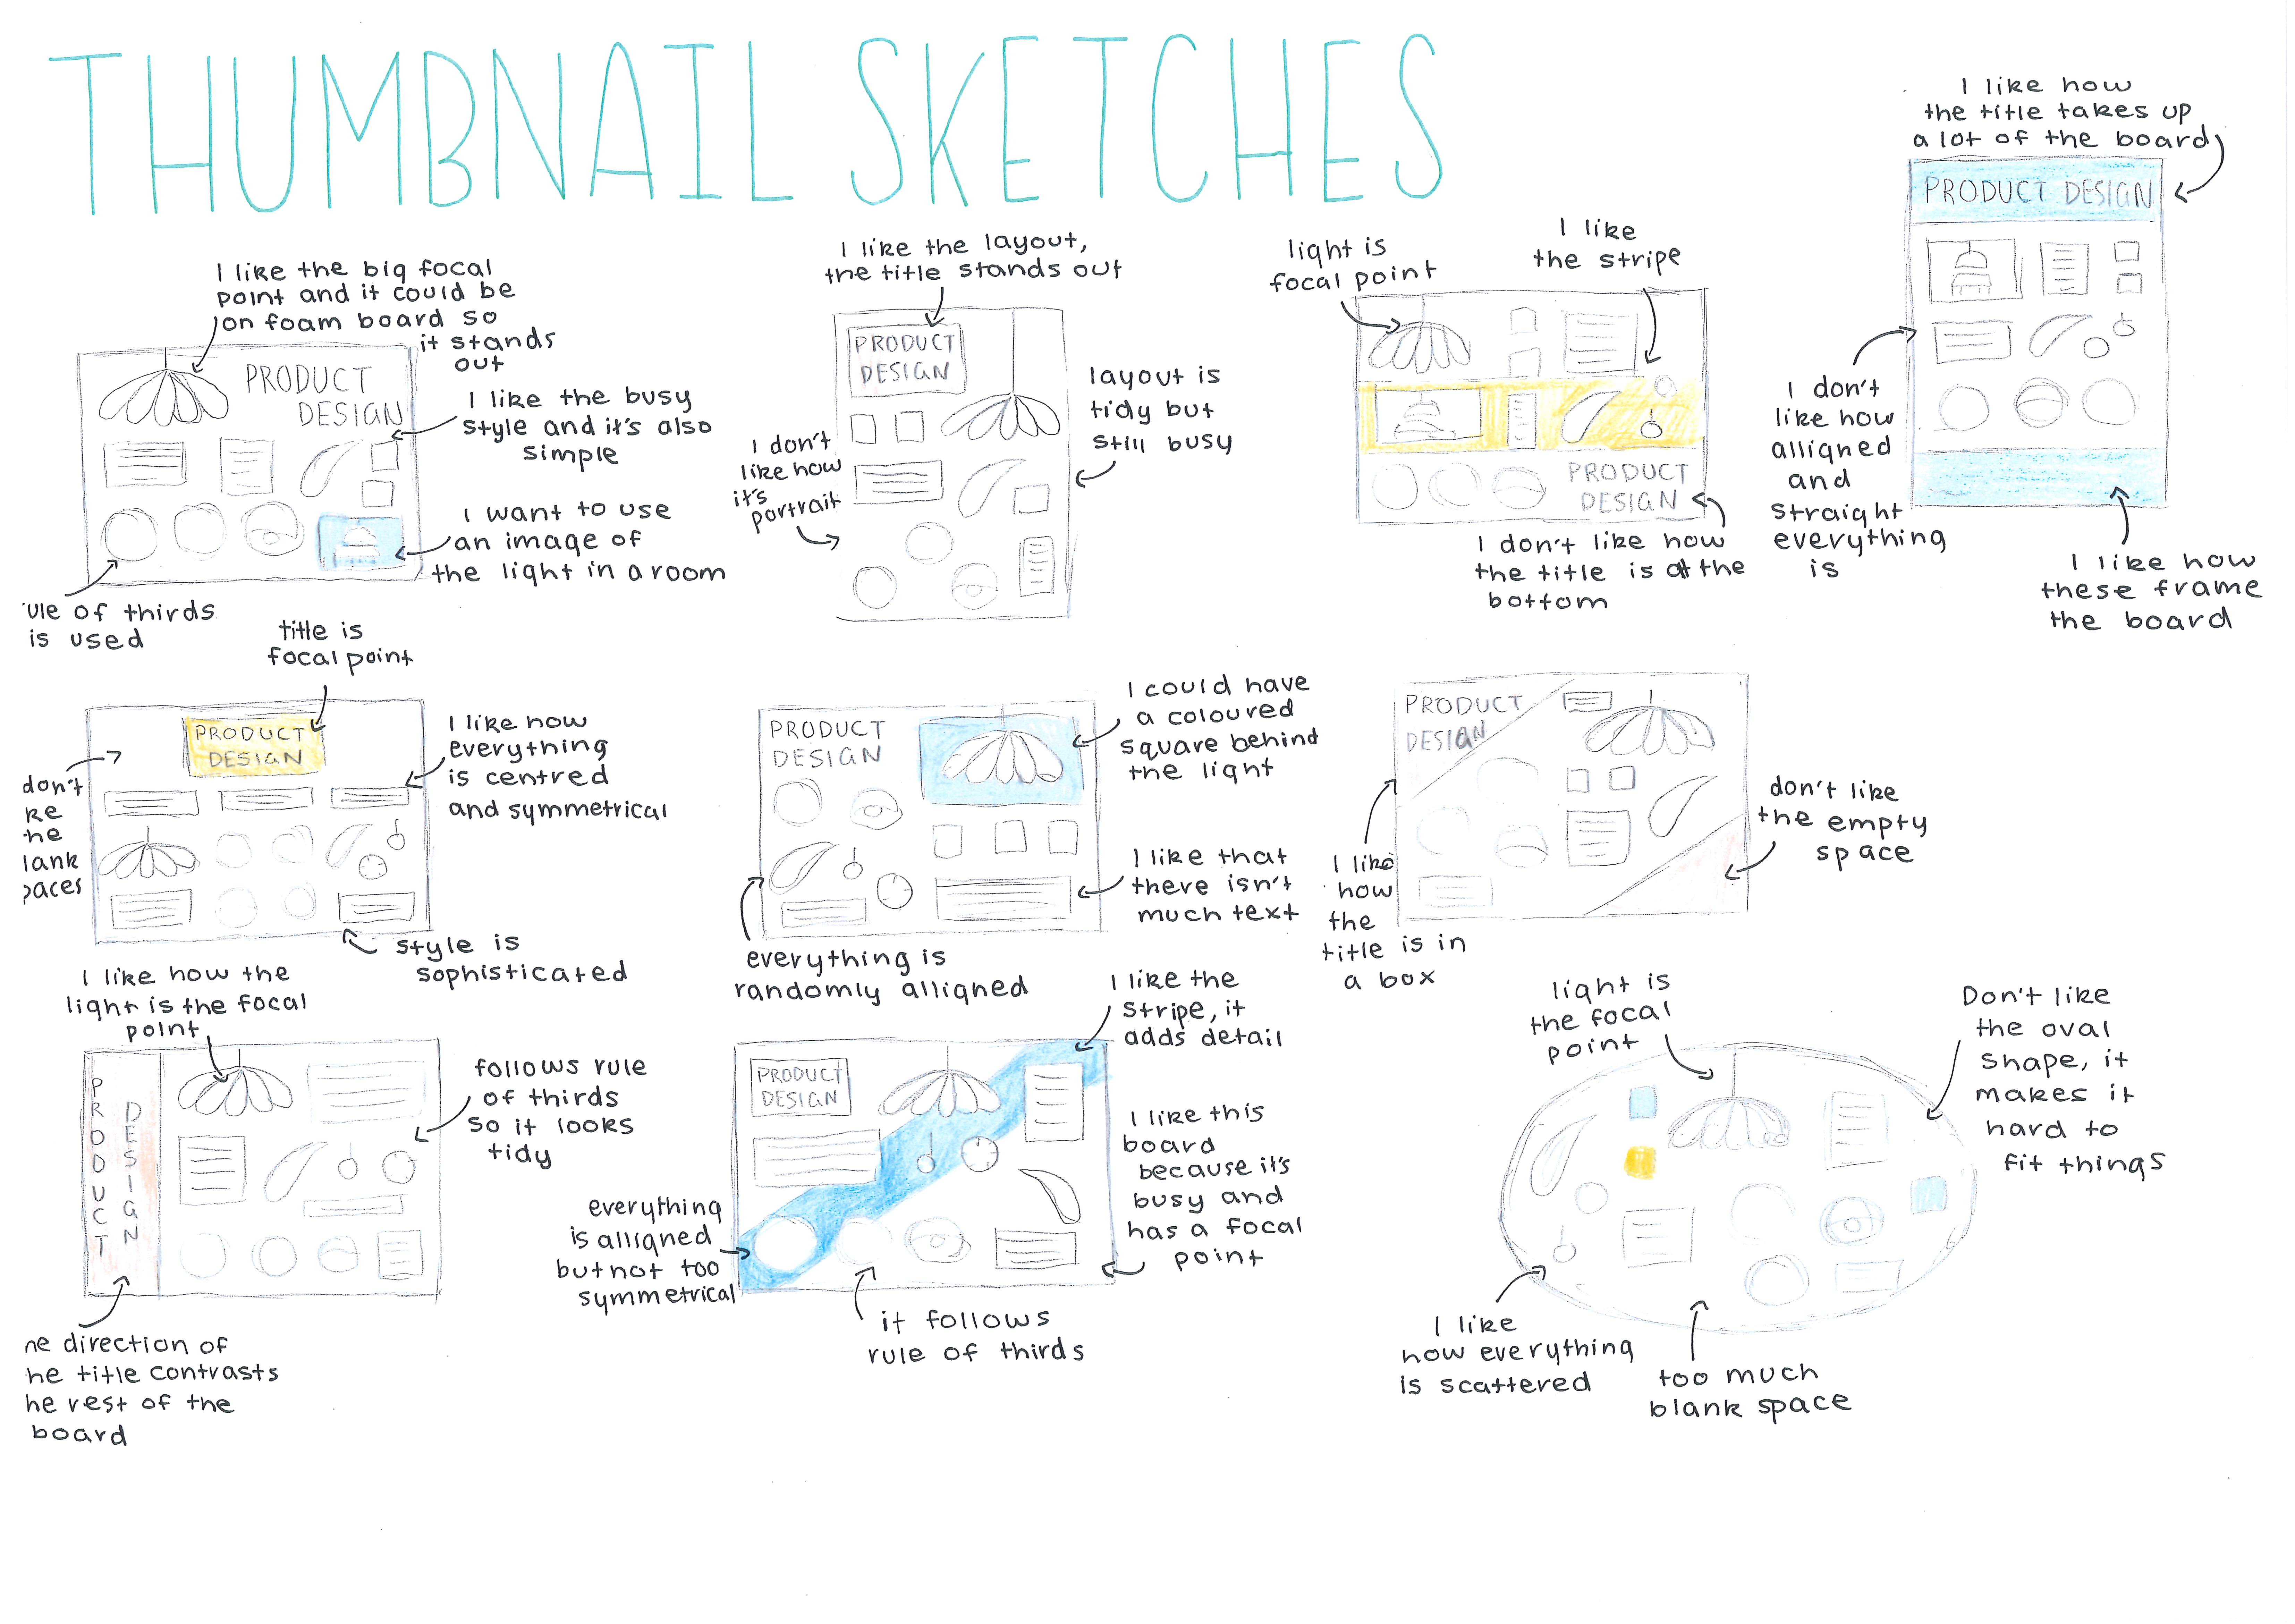 THUMBNAIL SKETCHES
I like the big focal
point and it could be
on foam board so
it stands
out
PRODUCT
DESIGN
I like the busy
style and it's also
simple
I want to use
an image of
the light in a room
ule of thirds
is used
I like the layout,
the title stands out
PRODUCT
DESIGN
layout is
tidy but
still busy
I don't
like how
it's
portrait
light is
focal point
I like
the stripe
PRODUCT
DESIGN
I don't like how
the title is at the
bottom
I like how
the title takes up
a lot of the board
PRODUCT DESIGN
I don't
like how
alligned
and
straight
everything
is
I like how
these frame
the board
title is
focal point
PRODUCT
DESIGN
don't
ke
he
lank
paces
I like how
everything
is centred
and symmetrical
style is
sophisticated
PRODUCT
DESIGN
I could have
a coloured
square behind
the light
I like that
there isn't
much text
everything is
randomly alligned
PRODUCT
DESIGN
I like
how
the
title is in
a box
don't like
the empty
space
I like how the
light is the focal
point
PRODUCT
DESIGN
follows rule
of thirds
so it looks
tidy
he direction of
he title contrasts
he rest of the
board
I like the
stripe, it
adds detail
PRODUCT
DESIGN
I like this
board
because it's
busy and
has a focal
point
everything
is alligned
but not too
symmetrical
it follows
rule of thirds
light is
the focal
point
Don't like
the oval
shape, it
makes it
hard to
fit things
I like
how everything
is scattered
too much
blank space